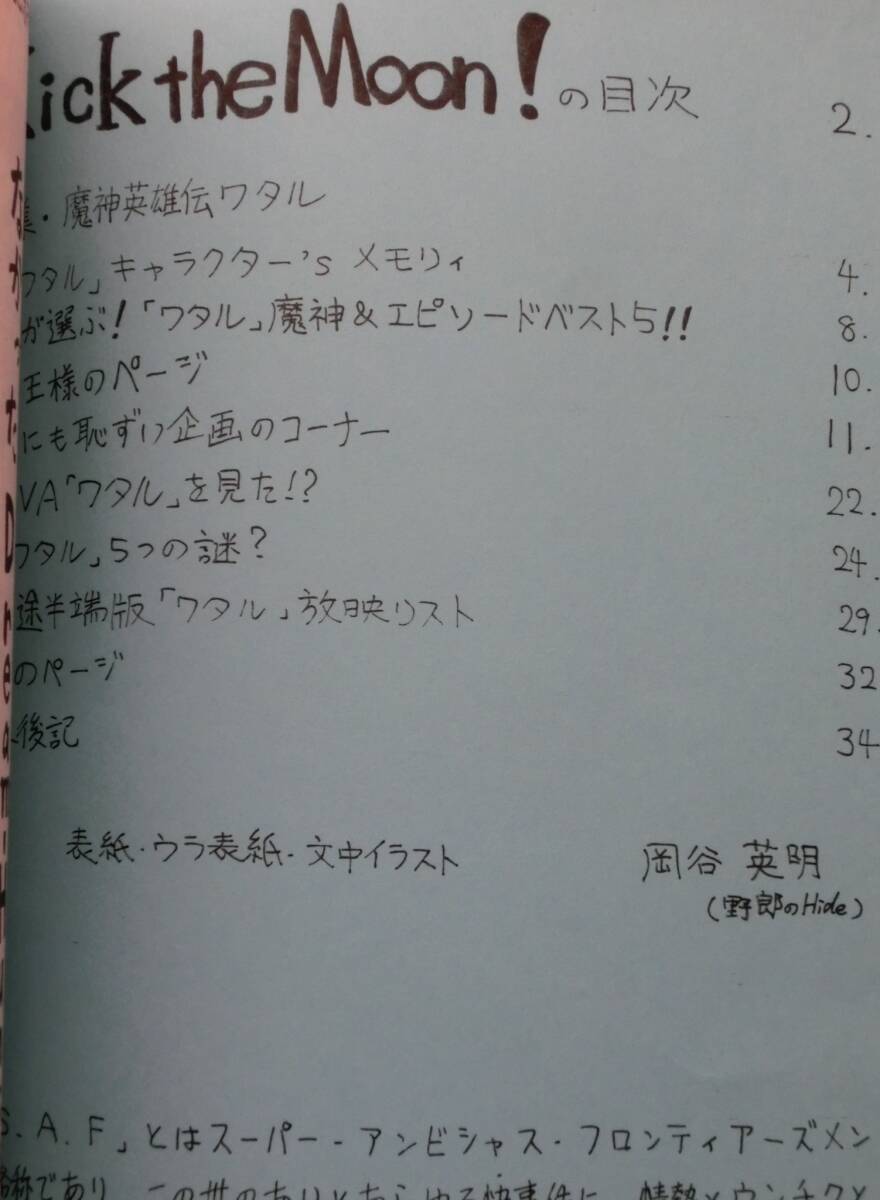 ick the Moon! の目次
2.
集・魔神英雄伝ワタル
ワタル」キャラクター's メモリィ 4.
が選ぶ!「ワタル」魔神&エピソードベスト5!! 8.
王様のページ 10.
にも恥ずい企画のコーナー 11.
VA「ワタル」を見た!? 22.
ワタル」5つの謎? 24.
途半端版「ワタル」放映リスト 29.
のページ 32
後記 34
表紙・ウラ表紙・文中イラスト 岡谷 英明
(野郎のHide)
S.A.F」とはスーパー・アンビシャス・フロンティアーズメン
称であり、この世のありとあらゆる